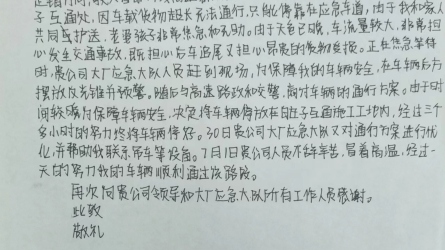 子互通处，因车载货物超长无法通行，只能停靠在应急车道，由于我和家人
共同或护送，老婆孩子非常焦急和无助。由于天色已晚，车流量较大，非常担
心发生交通事故，既担心后车追尾又担心昂贵的货物受损。正在焦急等待
时，贵公司大厂应急大队人员赶到现场，为保障我的车辆安全，在车辆后方
摆放反光锥并预警。随后与高速路政和交警，商讨车辆的通行方案。由于时
间较晚为保障车辆安全，决定将车辆停放在白庄子互通施工工地内，经过三个
多小时的努力终将车辆停好。30日贵公司大厂应急大队又对通行方案进行优
化，并帮助我联系吊车等设备。7月1日贵公司人员不辞辛苦，冒着高温，经过一
天的努力我的车辆顺利通过该路段。
再次向贵公司领导和大厂应急大队所有工作人员感谢。
此致
敬礼